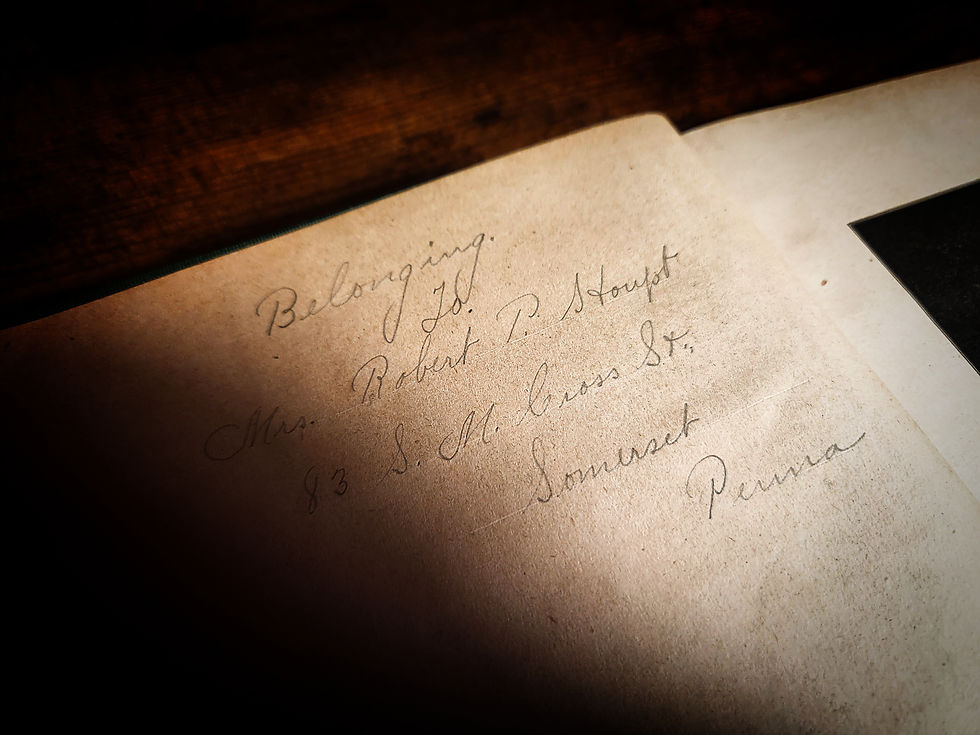 Belonging.
To.
Mrs. Robert P. Houpt
83 S. M. Cross St.
Somerset
Penna